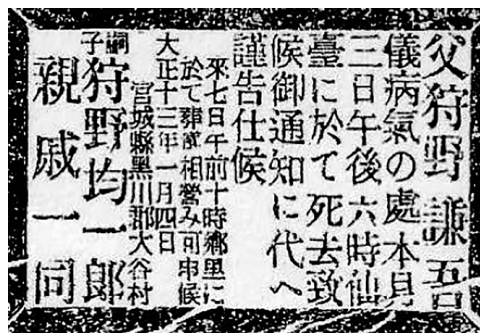 父狩野謙吾
儀病氣の處本月
三日午後六時仙
臺に於て死去致
候御通知に代へ
謹告仕候
來七日午前十時鄕里に
於て葬儀相營み可申候
大正十三年一月四日
宮城縣黑川郡大谷村
嗣子 狩野均一郎
親戚一同